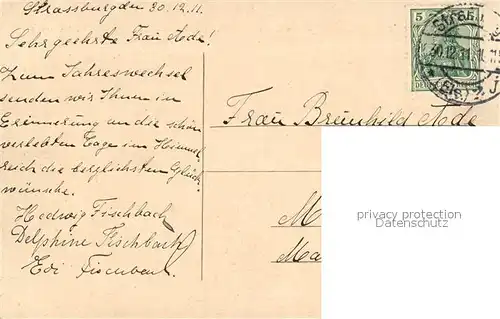 Strassburg den 30.12.11.
Sehrgeehrte Frau Ade!
Zum Jahreswechsel
senden wir Ihnen in
Erinnerung an die schön
verlebten Tage im Himmel-
reich die herzlichsten Glück-
wünsche.
Hedwig Fischbach
Delphine Fischbach
Edi Fischbach.
5
Strassb
30.12.11
(Els.) 2
J
Frau Brünhild Ade
M
Ma
privacy protection
Datenschutz